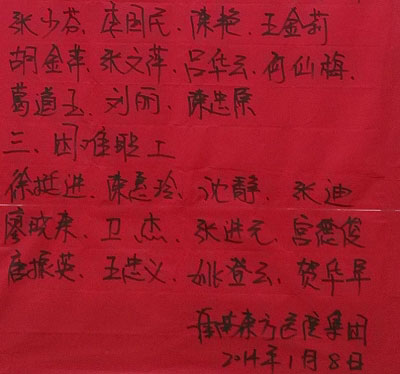 张少芬、李国民、陈艳、王金莉
胡金萍、张文萍、吕华云、何仙梅、
葛道玉、刘丽、陈忠原
三、困难职工
徐挺进、陈惠玲、沈静、张迪
廖晓东、卫杰、张进元、宫德俊
唐振英、王忠义、姚登云、贺华军
东方医院集团
2014年1月8日